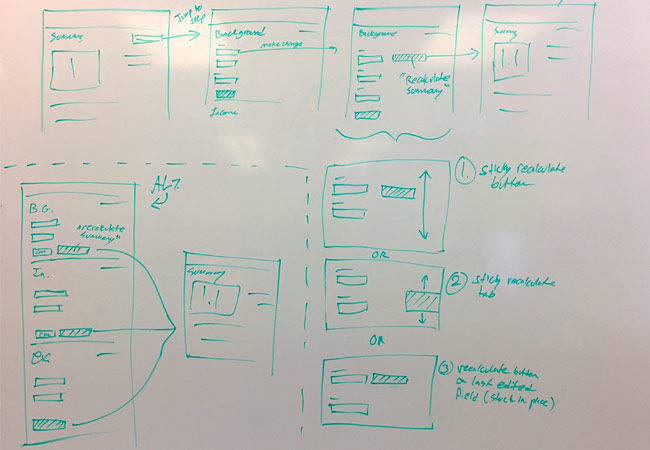 Summary
1
Jump to
step
Background
make change
Income
Background
"Recalculate
Summary"
Summary
1.1
ALT.
B.G.
"recalculate
Summary"
In.
Summary
1.1
1. Sticky recalculate
button
OR
2 sticky recalculate
tab
OR
3 recalculate button
on last edited
field (stuck in place)